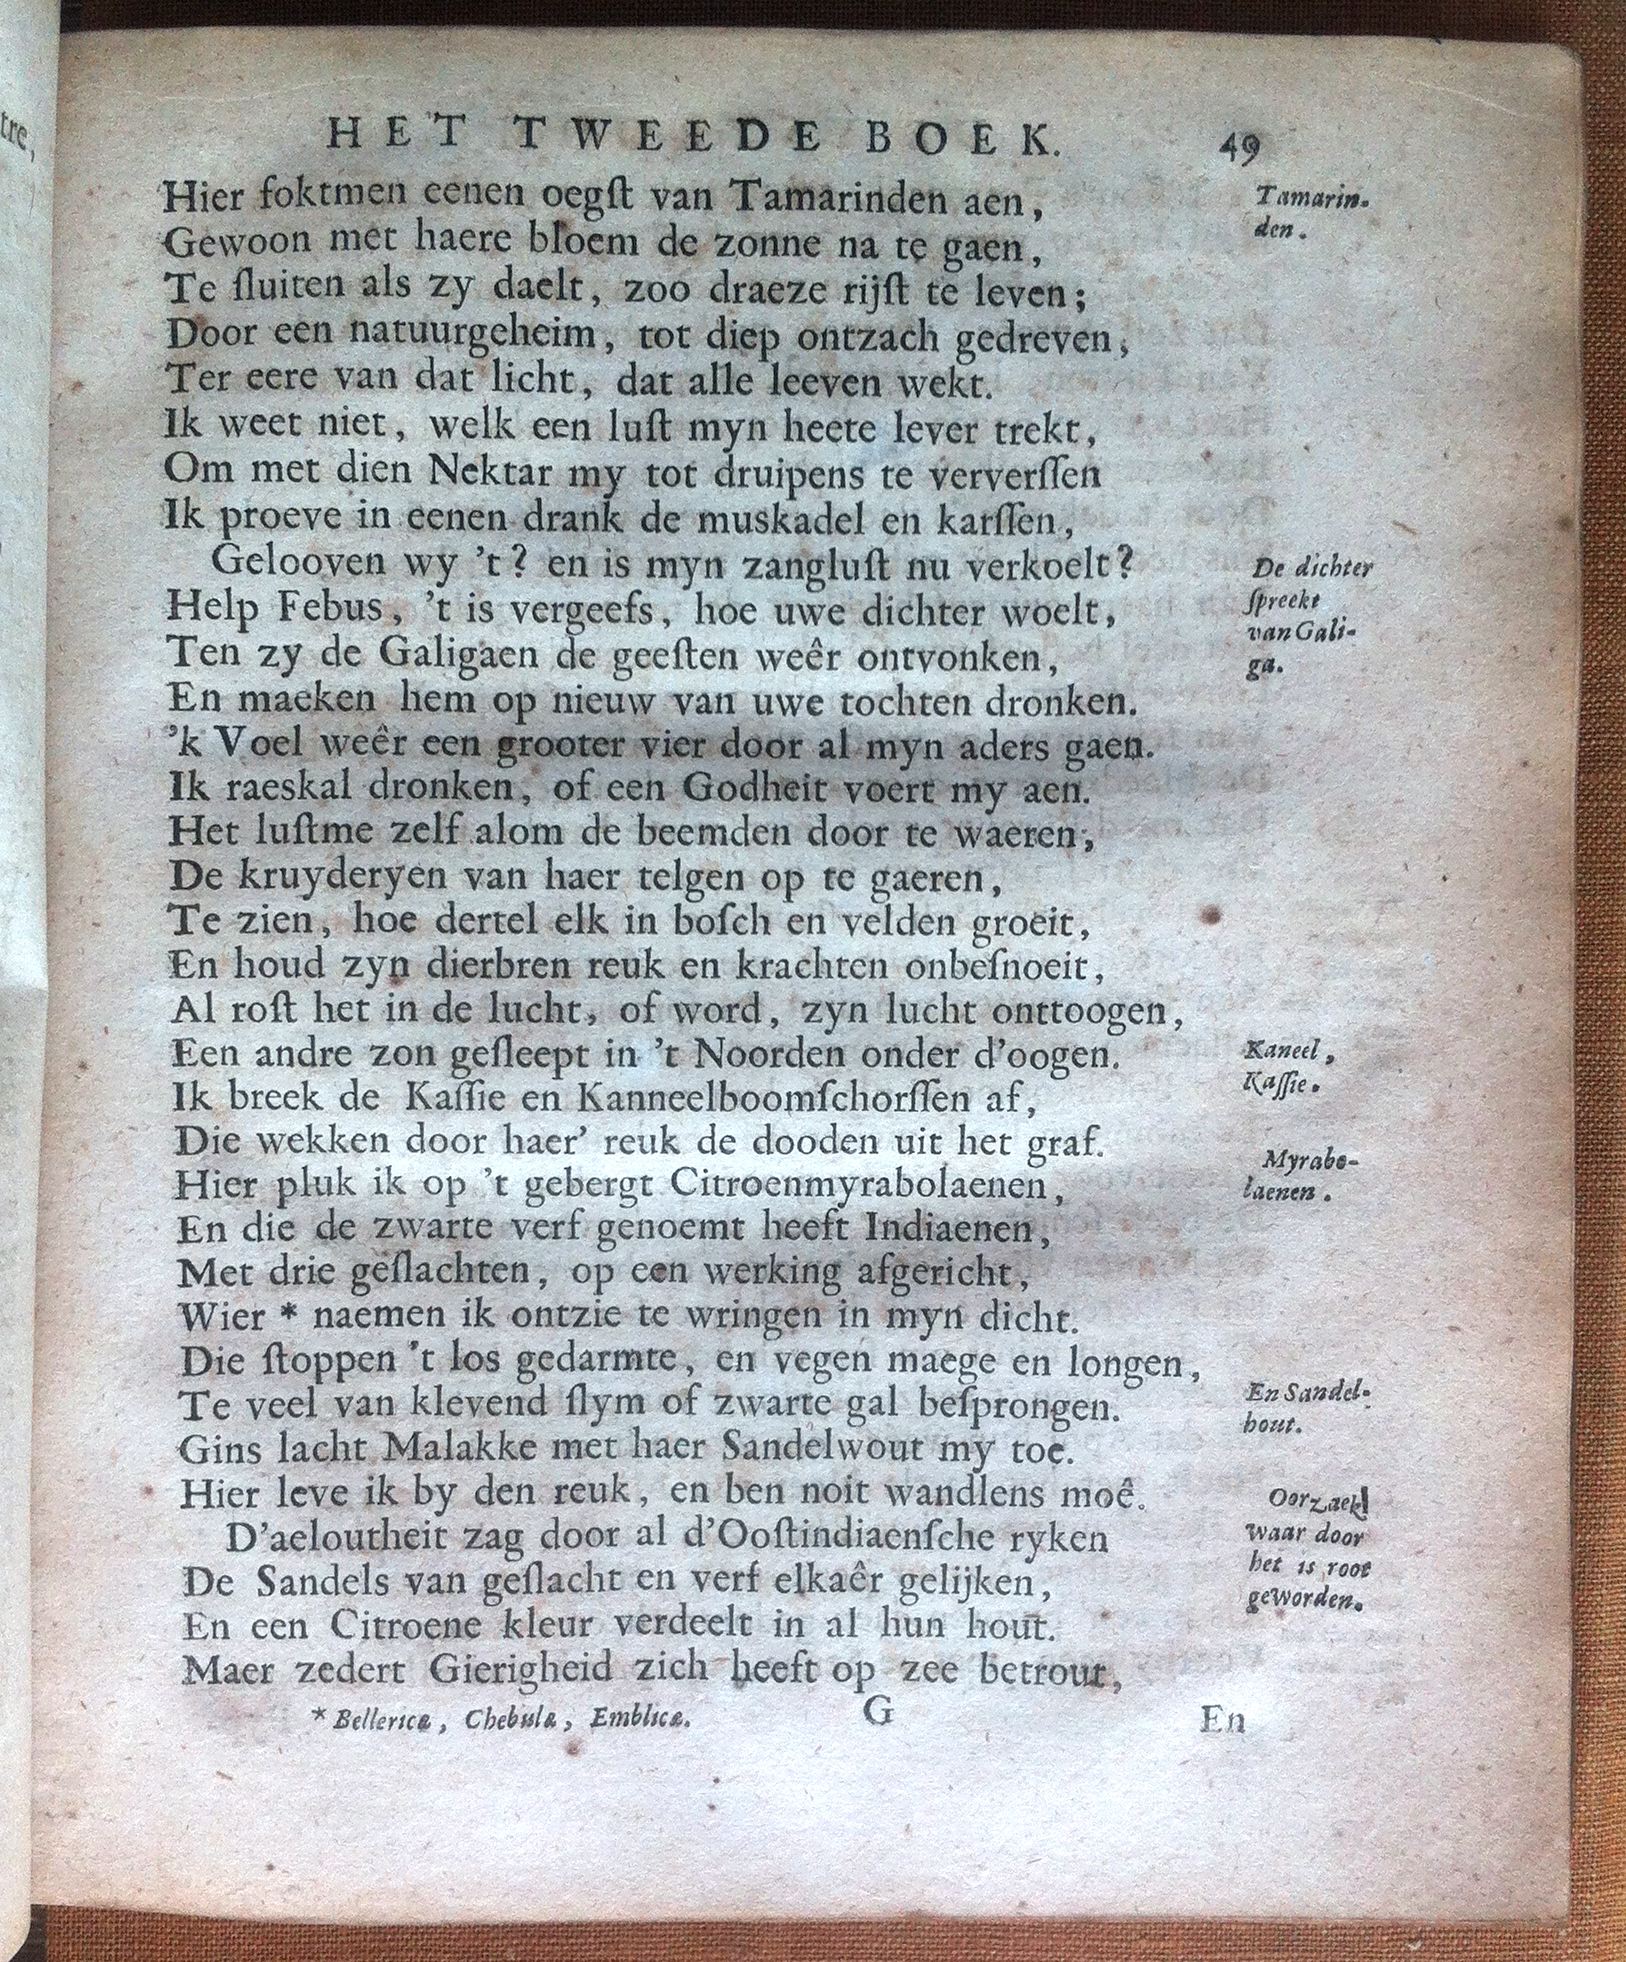 tre,
HET TWEEDE BOEK. 49
Hier foktmen eenen oegſt van Tamarinden aen,
Tamarin-
den.
Gewoon met haere bloem de zonne na te gaen,
Te ſluiten als zy daelt, zoo draeze rijſt te leven;
Door een natuurgeheim, tot diep ontzach gedreven,
Ter eere van dat licht, dat alle leeven wekt.
Ik weet niet, welk een luſt myn heete lever trekt,
Om met dien Nektar my tot druipens te ververſſen
Ik proeve in eenen drank de muskadel en karſſen,
Gelooven wy 't? en is myn zangluſt nu verkoelt?
De dichter
ſpreekt
van Gali-
ga.
Help Febus, 't is vergeefs, hoe uwe dichter woelt,
Ten zy de Galigaen de geeſten weêr ontvonken,
En maeken hem op nieuw van uwe tochten dronken.
'k Voel weêr een grooter vier door al myn aders gaen.
Ik raeskal dronken, of een Godheit voert my aen.
Het luſtme zelf alom de beemden door te waeren,
De kruyderyen van haer telgen op te gaeren,
Te zien, hoe dertel elk in boſch en velden groeit,
En houd zyn dierbren reuk en krachten onbeſnoeit,
Al roſt het in de lucht, of word, zyn lucht onttoogen,
Een andre zon geſleept in 't Noorden onder d'oogen.
Kaneel,
Kaſſie.
Ik breek de Kaſſie en Kanneelboomſchorſſen af,
Die wekken door haer' reuk de dooden uit het graf.
Hier pluk ik op 't gebergt Citroenmyrabolaenen,
Myrabo-
laenen.
En die de zwarte verf genoemt heeft Indiaenen,
Met drie geſlachten, op een werking afgericht,
Wier * naemen ik ontzie te wringen in myn dicht.
Die ſtoppen 't los gedarmte, en vegen maege en longen,
Te veel van klevend ſlym of zwarte gal beſprongen.
En Sandel-
hout.
Gins lacht Malakke met haer Sandelwout my toe.
Hier leve ik by den reuk, en ben noit wandlens moê.
Oorzaek
waar door
het is root
geworden.
D'aeloutheit zag door al d'Ooſtindiaenſche ryken
De Sandels van geſlacht en verf elkaêr gelijken,
En een Citroene kleur verdeelt in al hun hout.
Maer zedert Gierigheid zich heeft op zee betrout,
* Bellericæ, Chebulæ, Emblicæ. G En